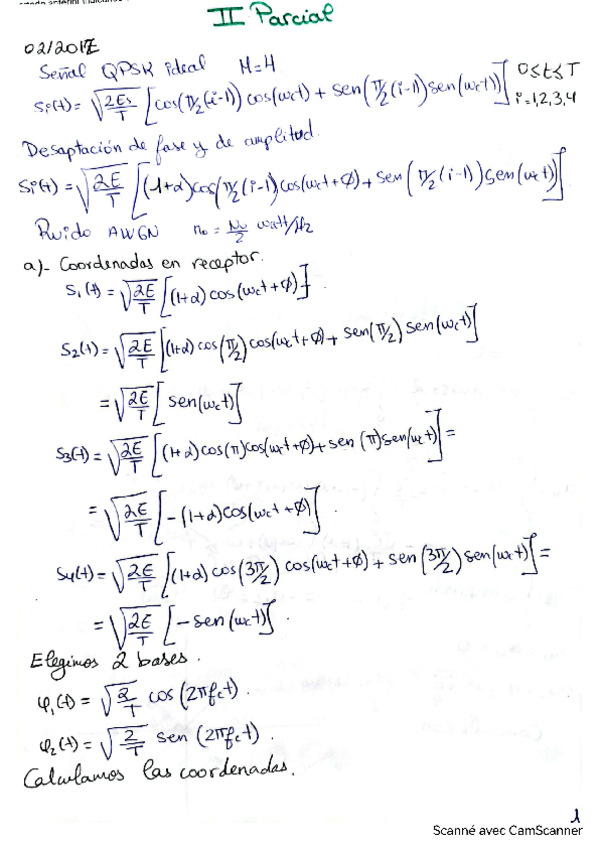 II Parcial
02/2017E
Señal QPSK ideal M=4
Si(t) = √(2Es/T) [cos(π/2(i-1)) cos(wct) + sen(π/2(i-1)) sen(wct)] 0≤t≤T
i=1,2,3,4
Desaptación de fase y de amplitud.
Si(t) = √(2E/T) [(1+α)cos(π/2(i-1))cos(wct+φ) + sen(π/2(i-1)) sen(wct)]
Ruido AWGN no = No/2 watt/Hz
a)- Coordenadas en receptor.
S1(t) = √(2E/T) [(1+α) cos(wct+φ)]
S2(t) = √(2E/T) [(1+α) cos(π/2) cos(wct+φ) + sen(π/2) sen(wct)]
= √(2E/T) [sen(wct)]
S3(t) = √(2E/T) [(1+α)cos(π)cos(wct+φ) + sen(π)sen(wct)] =
= √(2E/T) [-(1+α)cos(wct+φ)].
S4(t) = √(2E/T) [(1+α) cos(3π/2) cos(wct+φ) + sen(3π/2) sen(wct)] =
= √(2E/T) [-sen(wct)].
Elegimos 2 bases.
φ1(t) = √(2/T) cos(2πfct).
φ2(t) = √(2/T) sen(2πfct).
Calculamos las coordenadas.
1
Scanné avec CamScanner